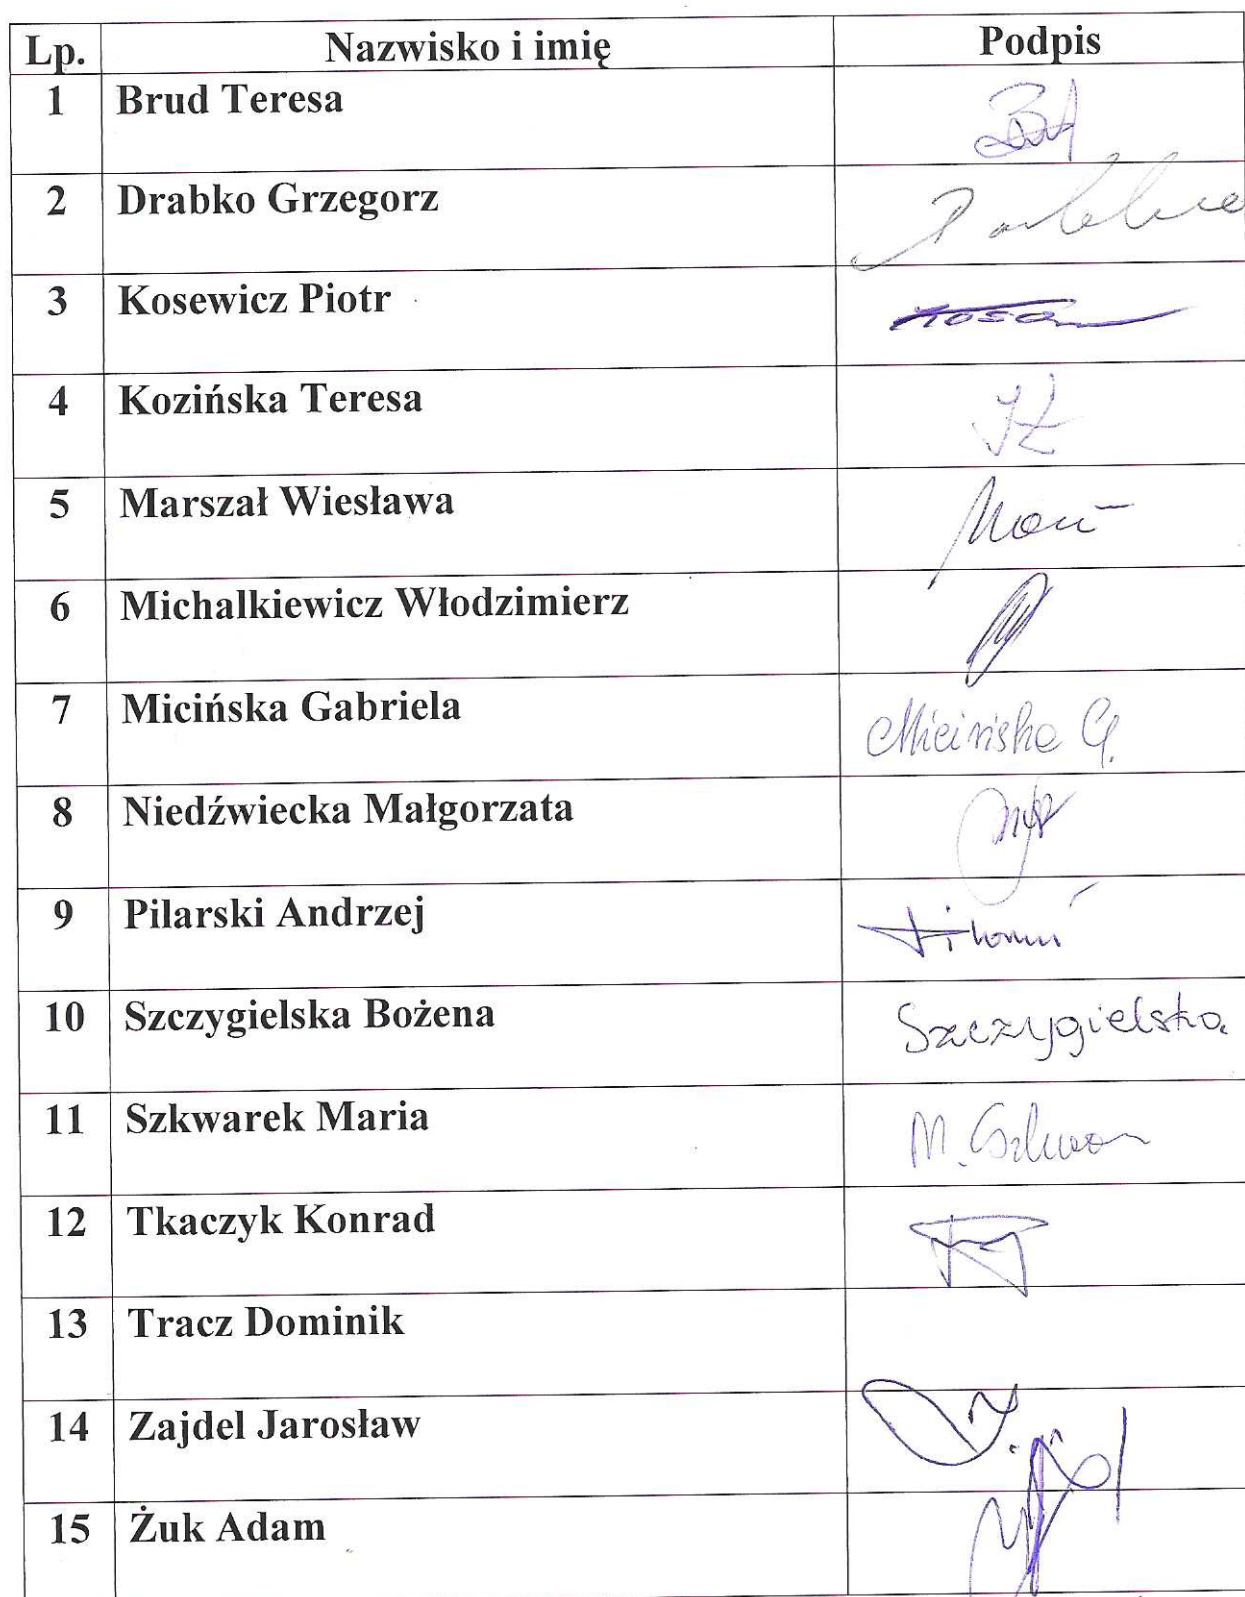 Lp. Nazwisko i imię Podpis
1 Brud Teresa
2 Drabko Grzegorz
3 Kosewicz Piotr
4 Kozińska Teresa
5 Marszał Wiesława
6 Michalkiewicz Włodzimierz
7 Micińska Gabriela Micińska G.
8 Niedźwiecka Małgorzata
9 Pilarski Andrzej
10 Szczygielska Bożena Szczygielska
11 Szkwarek Maria
12 Tkaczyk Konrad
13 Tracz Dominik
14 Zajdel Jarosław
15 Żuk Adam